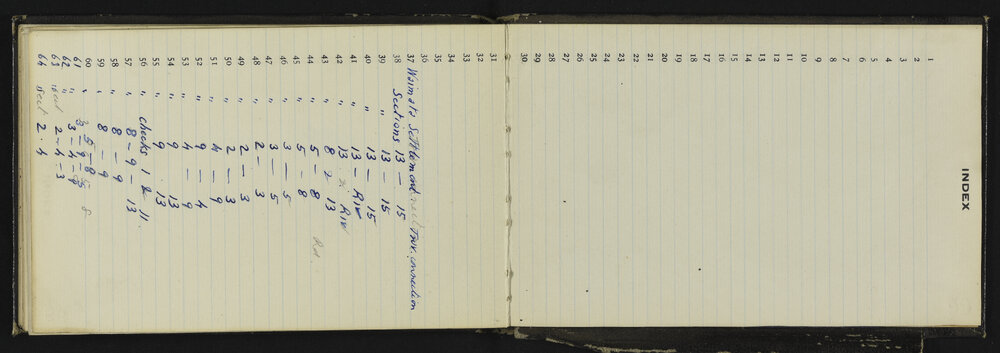 INDEX
1
2
3
4
5
6
7
8
9
10
11
12
13
14
15
16
17
18
19
20
21
22
23
24
25
26
27
28
29
30
31
32
33
34
35
36
37 Waimata Settlement Trav. connection
38 Sections 13 — 15
39 " 13 — 15
40 " 13 — 15
41 " 13 — RIV
42 " 13 2 RIV
43 8 2 13
44 " 5 — 8 Rd.
45 " 5 — 8
46 " 3 — 5
47 " 3 — 5
48 " 2 — 3
49 " 2 — 3
50 " 2 — 3
51 " 4 — 9
52 " 9 — 4
53 " 4 — 9
54 " 9 13
55 " 9 13
56 " checks 1 2 11
57 " 8 — 9 — 13
58 " 8 — 9
59 " 8 — 9
60 " 5 — 8
61 " 3 — 5 8
62 " 3 — 4 — 9
63 sect 2 — 4 — 3
64 sect 2 . 4